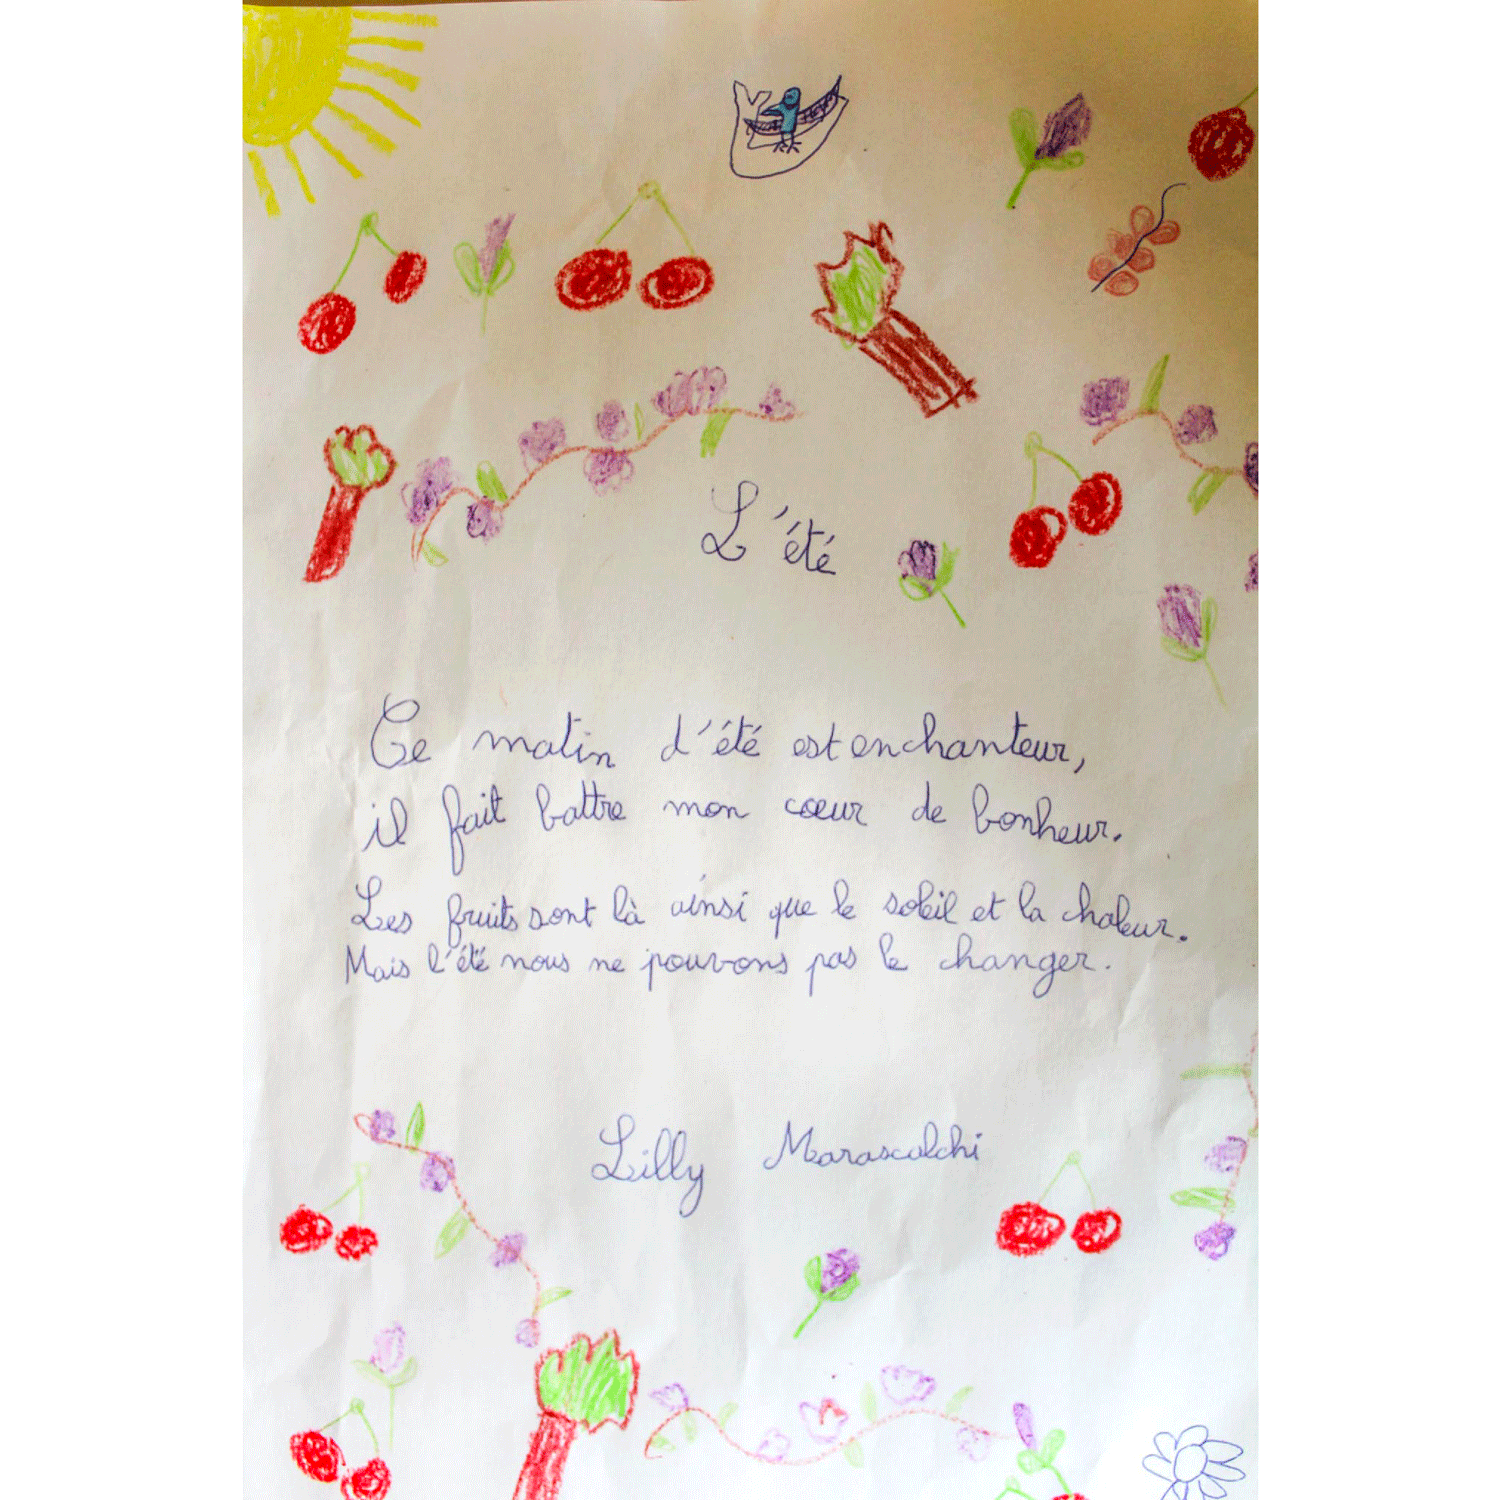 L'été
Ce matin d'été est enchanteur,
il fait battre mon cœur de bonheur.
Les fruits sont là ainsi que le soleil et la chaleur.
Mais l'été nous ne pouvons pas le changer.
Lilly Marascalchi